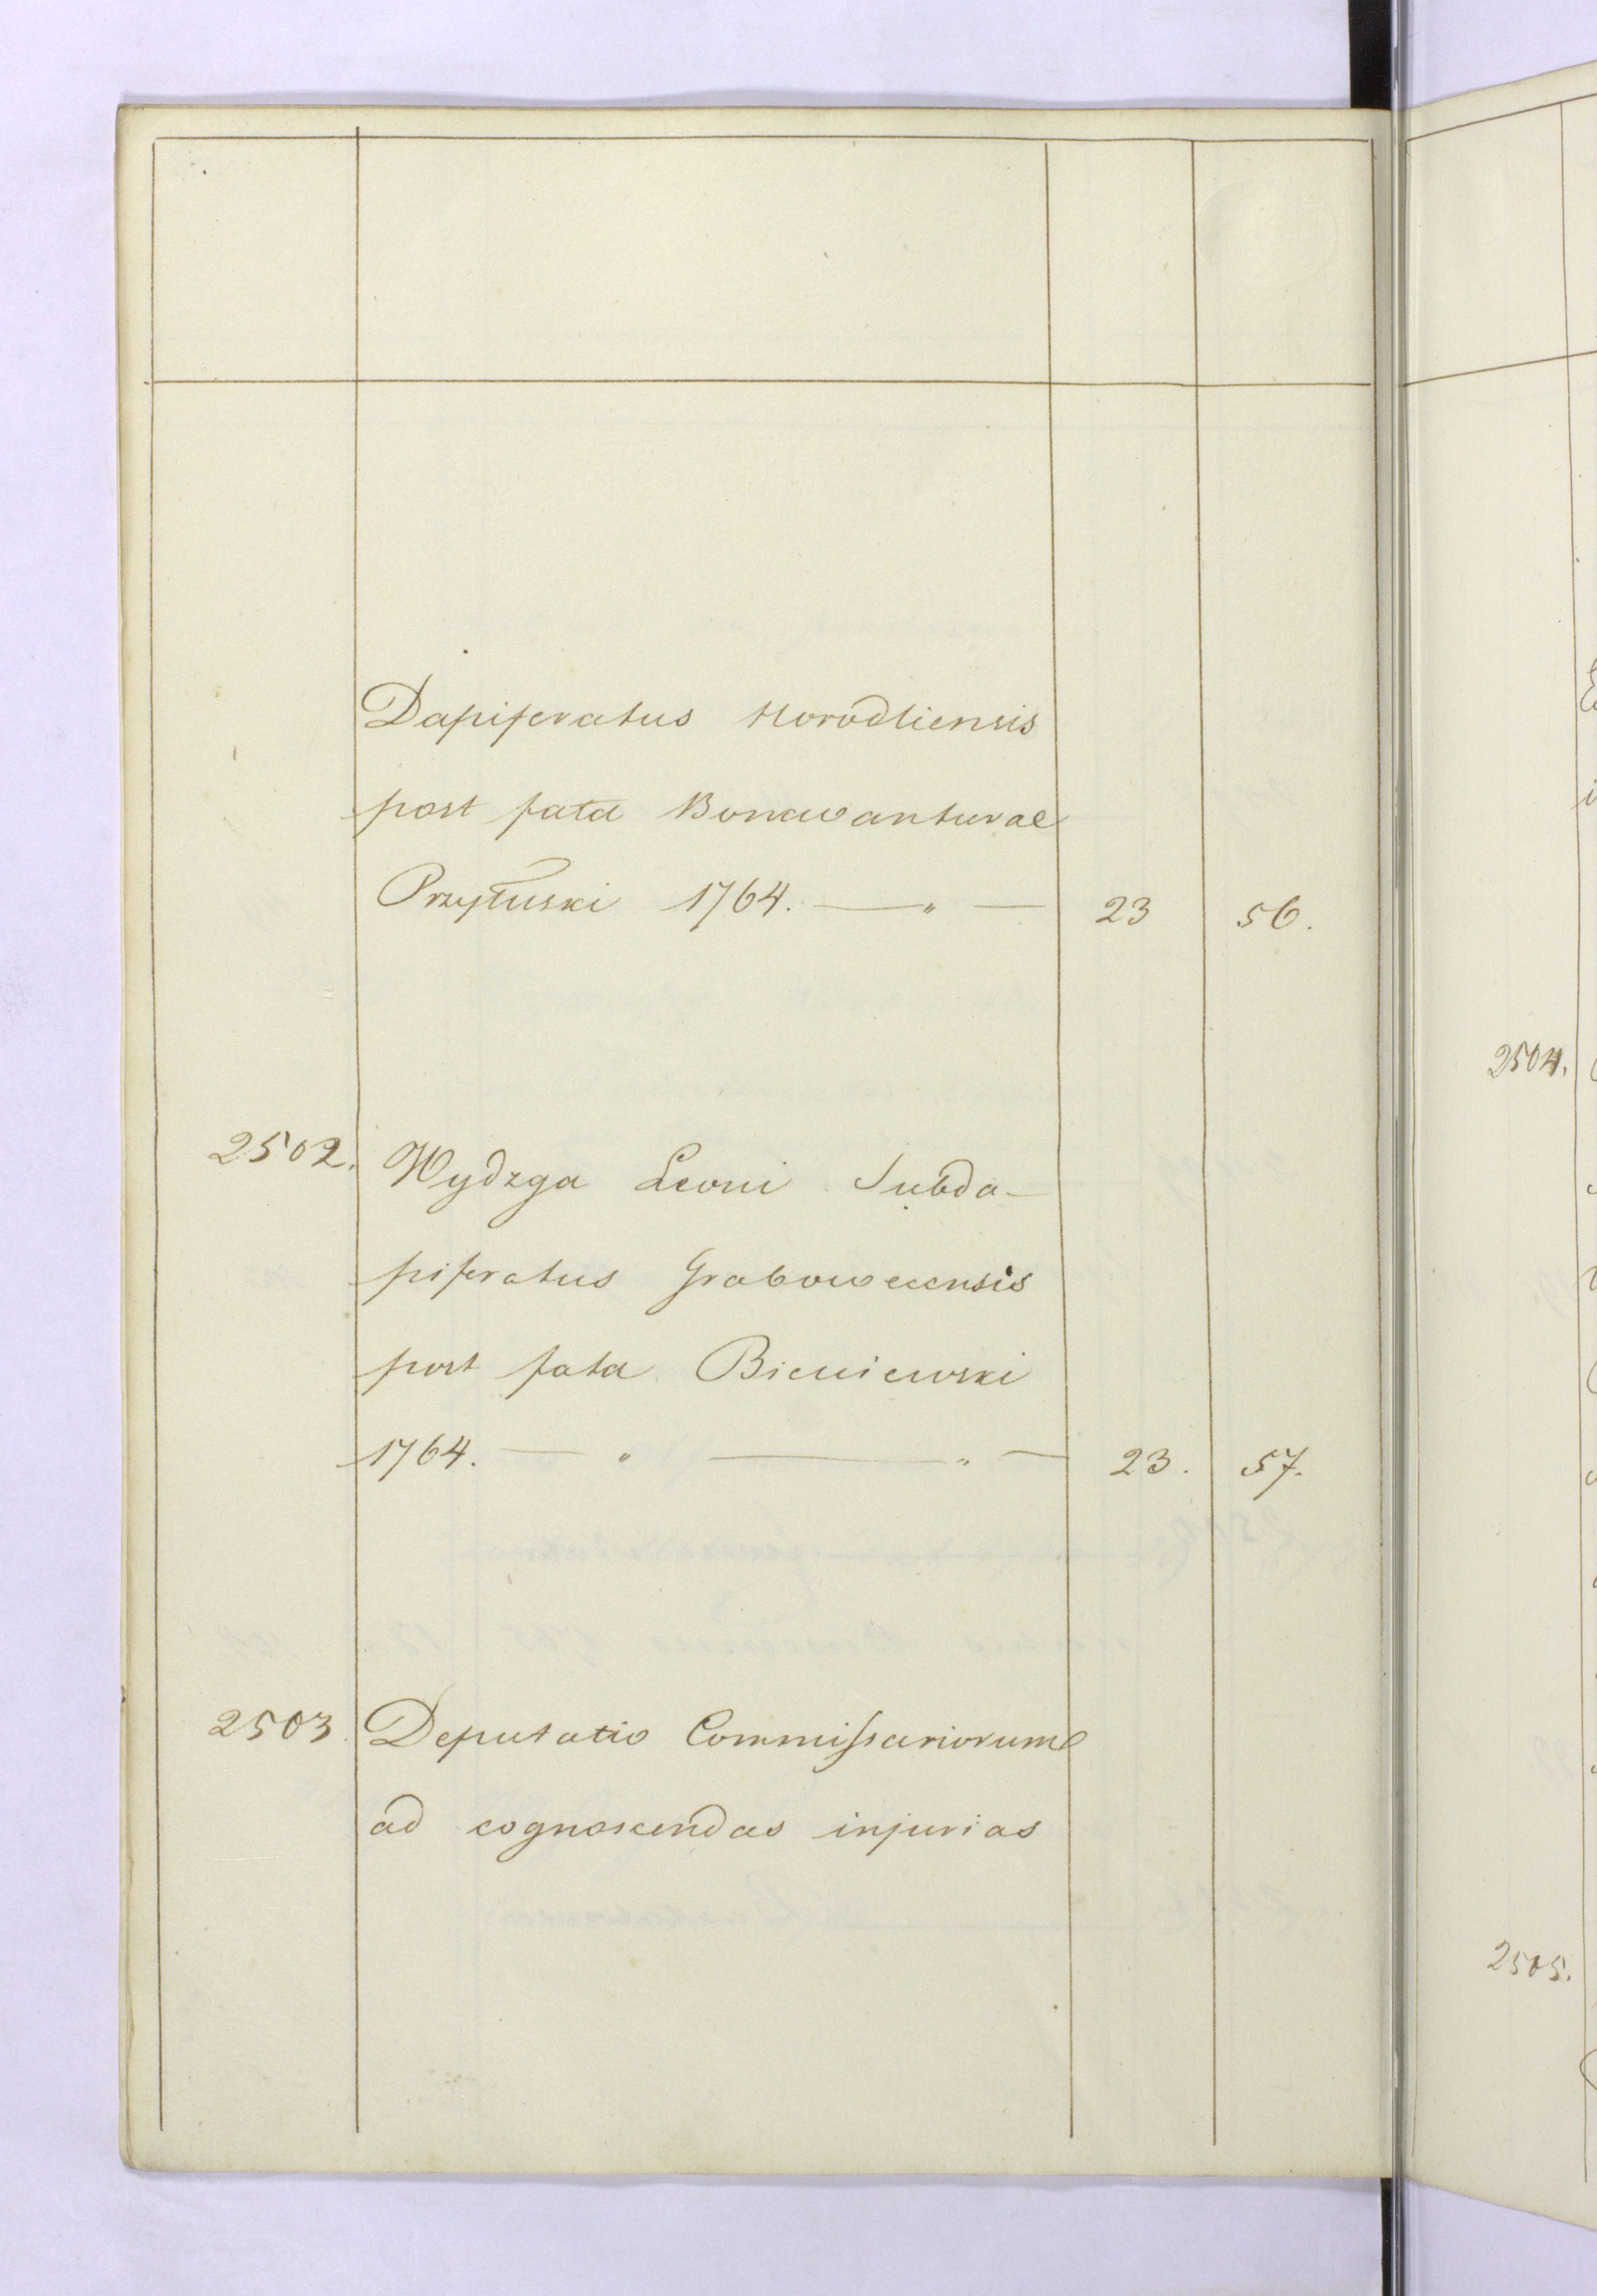 Dapiferatus Horodliensis
post fata Bonawanturae
Przyłuski 1764. — " — 23 56.
2502. Wydzga Leoni Subda-
piferatus Grabowecensis
post fata Bieniewski
1764. — " — " — 23. 57.
2503. Deputatio Commissariorum
ad cognoscendas injurias
2504.
2505.